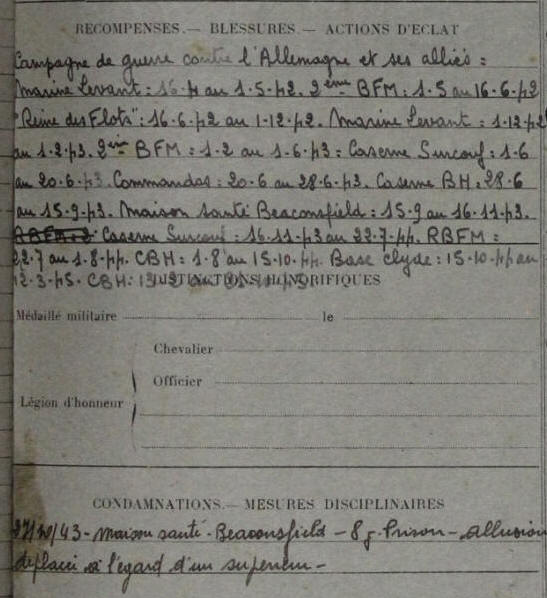 RECOMPENSES.— BLESSURES.— ACTIONS D'ECLAT
Campagne de guerre contre l'Allemagne et ses alliés :
Marine Levant : 16-4 au 1-5-42. 2ème BFM : 1-5 au 16-6-42
"Reine des Flots" : 16-6-42 au 1-12-42. Marine Levant : 1-12-42
au 1-2-43. 2ème BFM : 1-2 au 1-6-43 : Caserne Surcouf : 1-6
au 20-6-43. Commandos : 20-6 au 28-6-43. Caserne BH : 28-6
au 15-9-43. Maison santé Beaconsfield : 15-9 au 16-11-43.
Caserne Surcouf : 16-11-43 au 22-7-44. RBFM :
22-7 au 1-8-44. CBH : 1-8 au 15-10-44. Base Clyde : 15-10-44 au
12-3-45. CBH :
DISTINCTIONS HONORIFIQUES
Médaillé militaire le
Chevalier
Officier
Légion d'honneur
CONDAMNATIONS.— MESURES DISCIPLINAIRES
/43 - Maison santé - Beaconsfield - 8 j. Prison - allusion
déplacée à l'égard d'un supérieur -